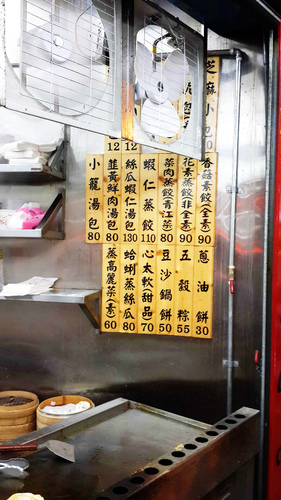 芝麻小包
香菇素餃(全素) 90
蔥油餅 30
花素蒸餃(非全素) 90
五穀粽 55
菜肉蒸餃(青江菜) 80
豆沙鍋餅 50
蝦仁蒸餃 110
心太軟(甜品) 70
12
絲瓜蝦仁湯包 130
蛤蜊蒸絲瓜 80
12
韮黃鮮肉湯包 80
蒸高麗菜(素) 60
小籠湯包 80